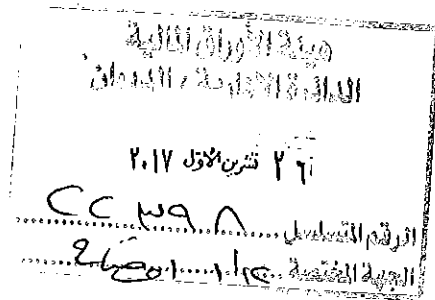 هيئة الأوراق المالية
الدائرة الإدارية / الديوان
٢٦ تشرين الأول ٢٠١٧
الرقم المتسلسل ٢٢٣٩٨
الجهة المختصة